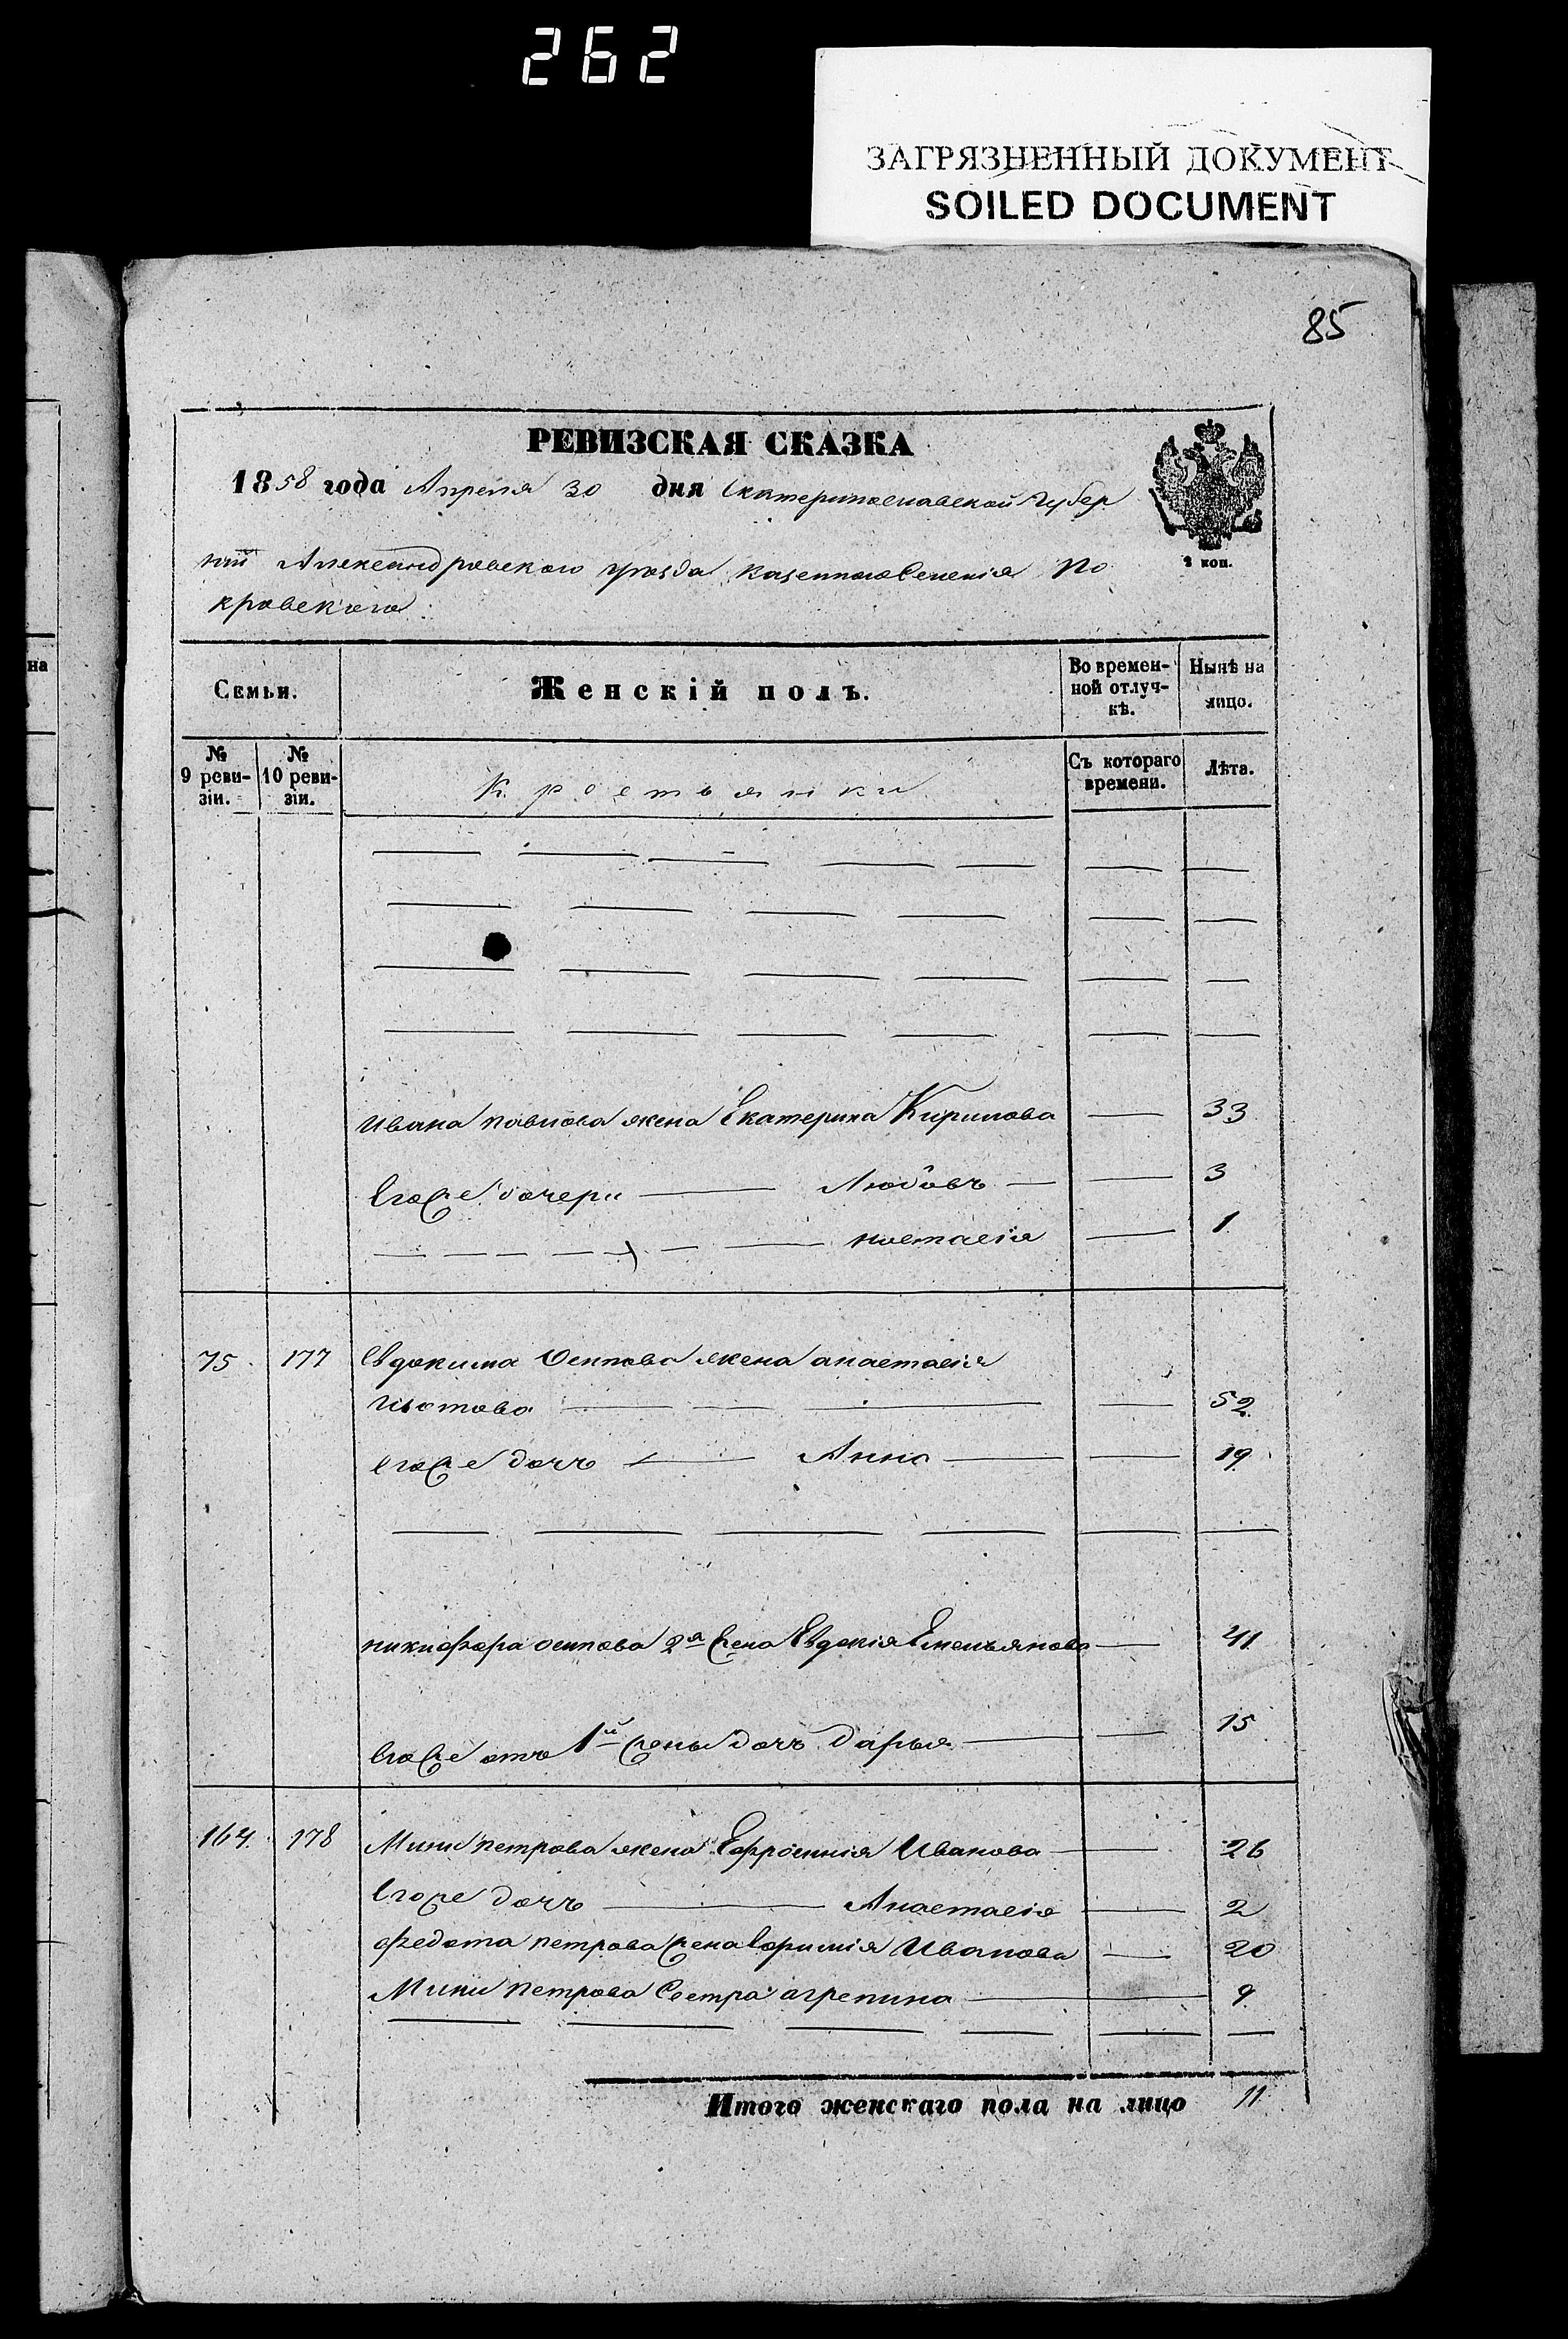 262
ЗАГРЯЗНЕННЫЙ ДОКУМЕНТ
SOILED DOCUMENT
85
РЕВИЗСКАЯ СКАЗКА
1858 года Апреля 30 дня Екатеринославской Губер
нии Александровского уезда казенного Селенія По
кровского
2 коп.
на
Семьи.
Женскій полъ.
Во времен-
ной отлуч-
кѣ.
Нынѣ на
лицо.
№
9 реви-
зіи.
№
10 реви-
зіи.
Крестьянки
Съ котораго
времени.
Лѣта.
Ивана павлова жена Екатерина Кирилова — 33
Егоже дочери — Любовь — — 3
настасія — 1
75 177 Евдокима Осипова жена анастасія
Изотова — 52
егоже дочь — Анна — — 19
никифора осипова 2я жена Евдокія Емельянова — 41
Егоже отъ 1й жены дочь дарья — — 15
164 178 Мини петрова жена Ефросинія Иванова — 26
Егоже дочь — Анастасія — 2
федота петрова жена Ефимія Иванова — 20
Мини петрова Сестра агрепина — 9
Итого женскаго пола на лицо 11